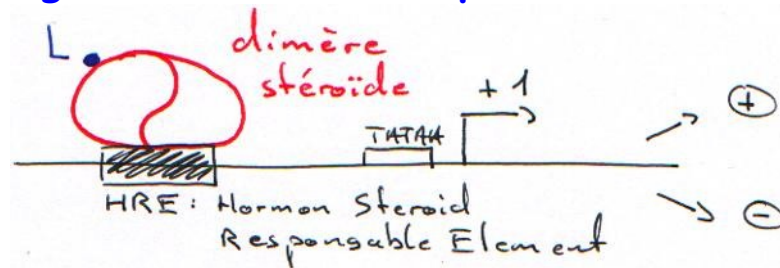 L
dimère
stéroïde
+1
TATAA
+
HRE : Hormon Steroid
Responsable Element
-